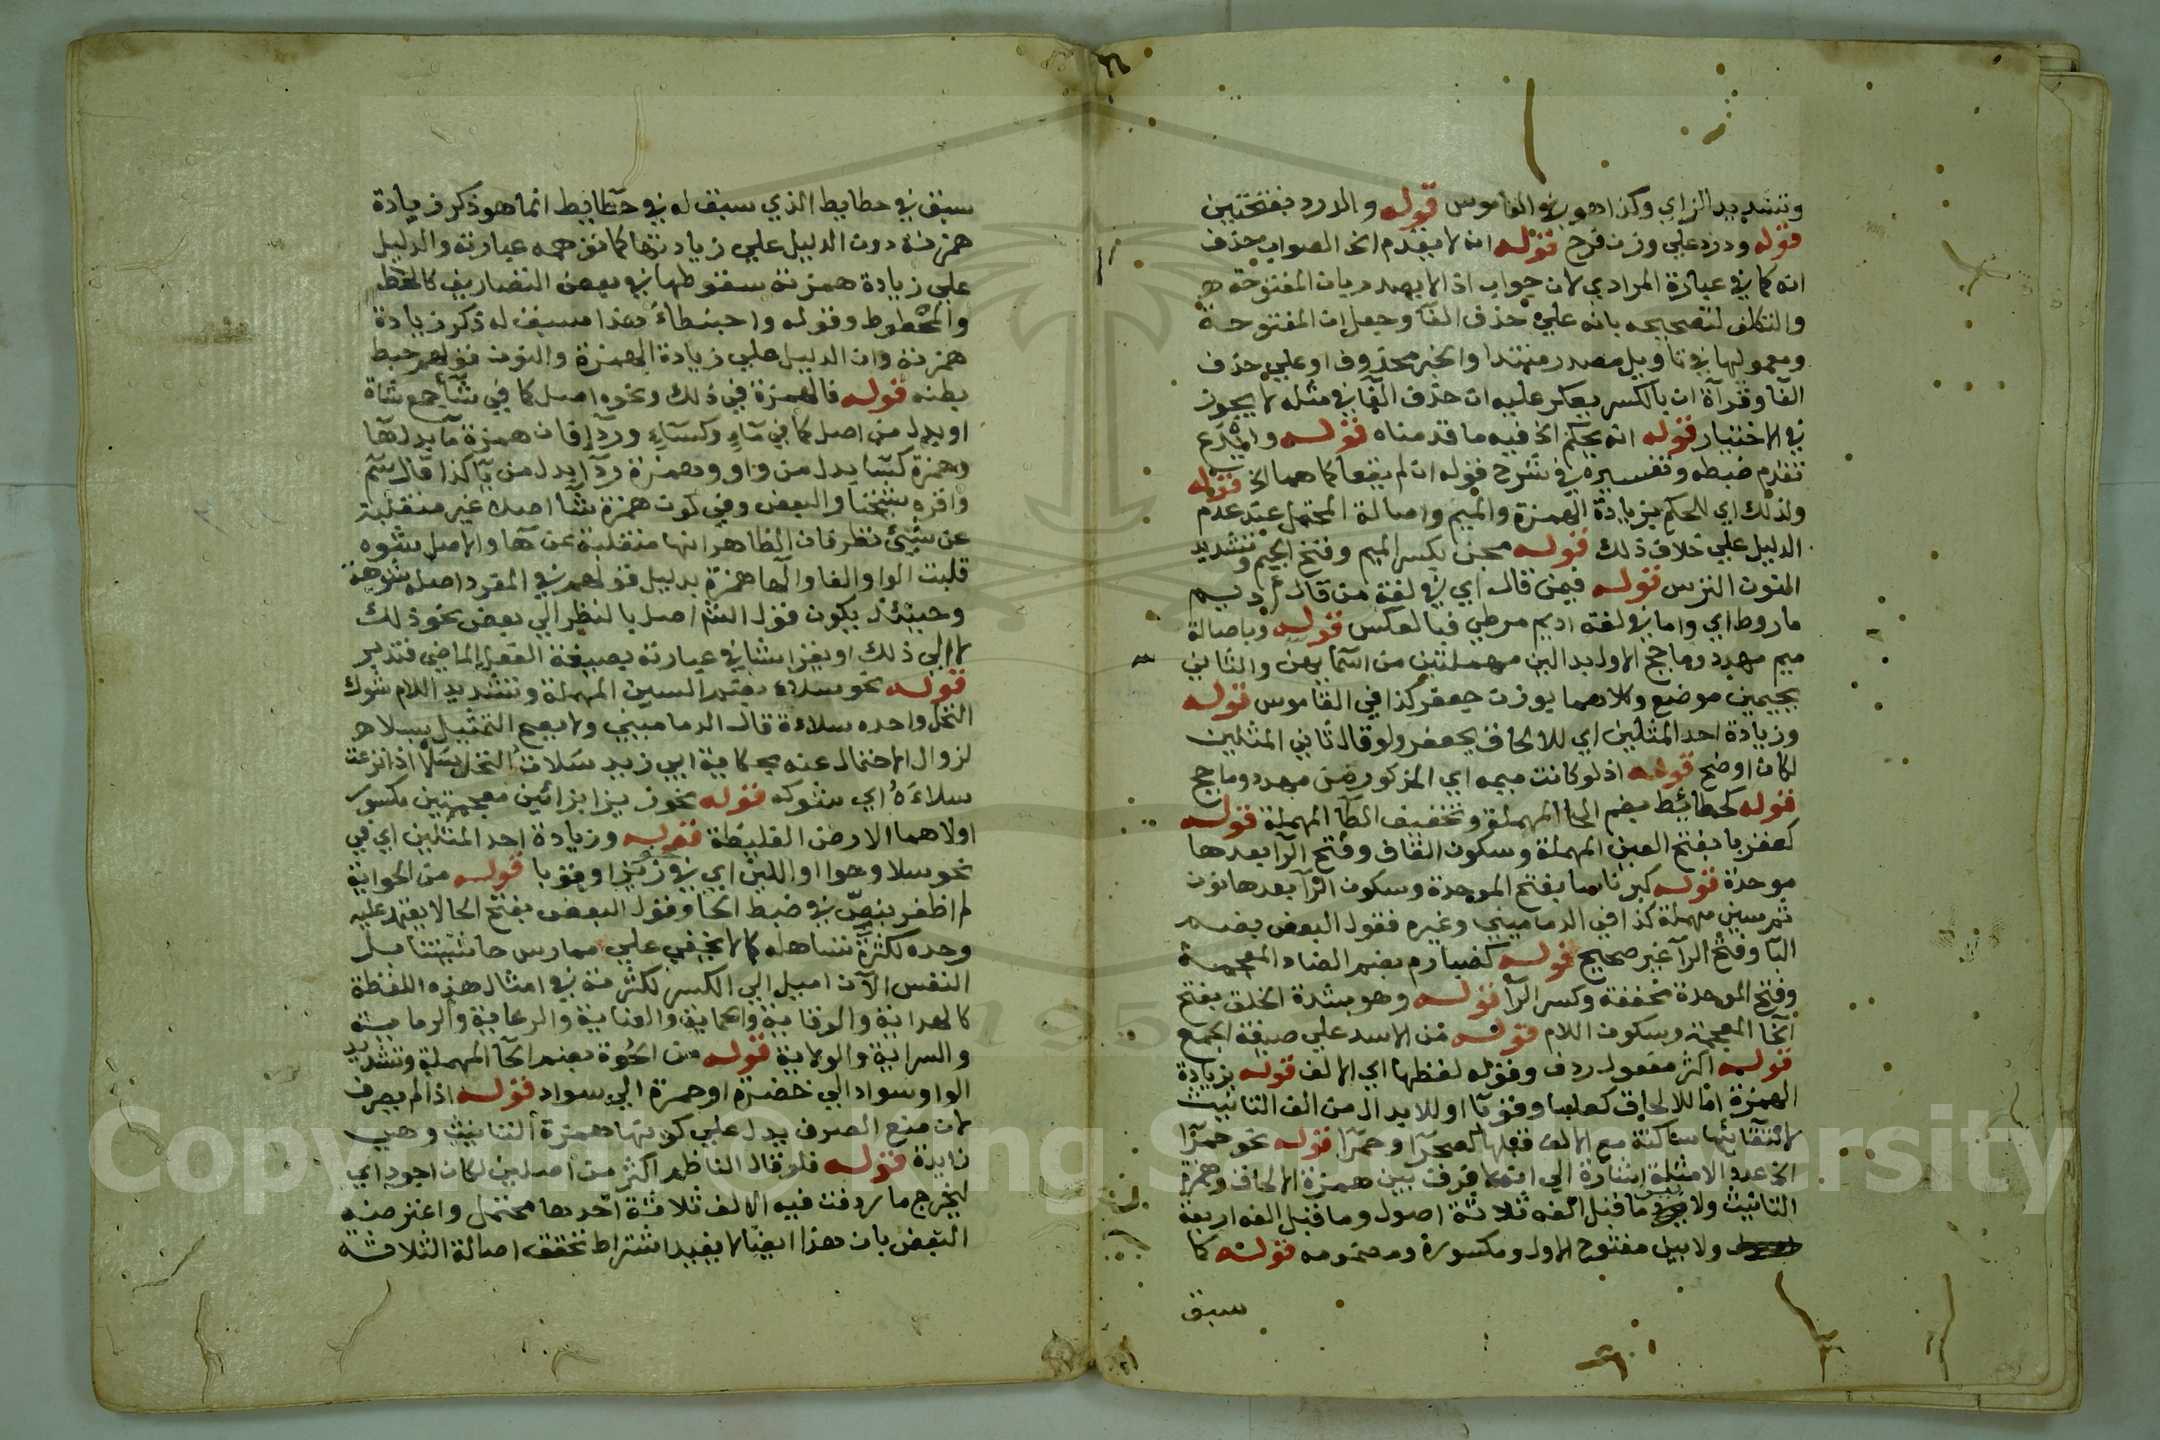 وتشديد الزاي وكذا هو في القاموس قوله والدرد بفتحتين
قوله ودرد علي وزن فرح قوله انه لا يقدم الخ الصواب حذف
انه كما في عبارة المرادي لان جواب اذ الا يصدر بان المفتوحة
والتكلف لتصحيحه بانه علي حذف الفآ وجعل ان المفتوحة
ومعمولها في تاويل مصدر مبتدا والخبر محذوف او علي حذف
الفآ وقرآة ان بالكسر يعكر عليه ان حذف الفآ في مثله لا يجوز
في الاختيار قوله انه يحكم الخ فيه ما قدمناه قوله والميدع
تقدم ضبطه وتفسيره في شرح قوله ان لم يقعا كما هما الخ قوله
ولذلك اي للحكم بزيادة الهمزة والميم واصالة المحتمل عند عدم
الدليل علي خلاف ذلك قوله مجن بكسر الميم وفتح الجيم وتشديد
النون الترس قوله فيمن قال اي في لغة من قال اديم
ماروط اي واما في لغة اديم مرطي فبالعكس قوله وباصالة
ميم مهدد وماجج الاول بدالين مهملتين من اسمآ بهن والثاني
بجيمين موضع وكلاهما بوزن جعفر كذا في القاموس قوله
وزيادة احد المثلين اي للالحاف بجعفر ولو قال ثاني المثلين
لكان اوضح قوله اذ لو كانت ميمه اي المذكور من مهدد وماجج
قوله كحطائط بضم الحآ المهملة وتخفيف الطآ المهملة قوله
كعقربا بفتح العين المهملة وسكون القاف وفتح الرآ بعدها
موحدة قوله كبرناسا بفتح الموحدة وسكون الرآ بعدها نون
ثم سين مهملة كذا في الدماميني وغيره فقول البعض بضم
البآ وفتح الرآ غير صحيح قوله كضبارم بضم الضاد المعجمة
وفتح الموحدة مخففة وكسر الرآ قوله وهو بشدة الخلق بفتح
الخآ المعجمة وسكون اللام قوله من الاسد علي صيغة الجمع
قوله اكثر مفعول ردف وقوله لفظها اي الالف قوله بزيادة
الهمزة اما للالحاق كعلبا وقوبآ او للابدال من الف التانيث
لالتقائها ساكنة مع الالف قبلها كصحرآ وحمرآ قوله نحو حمرآ
الخ عدد الامثلة اشارة الي انه لا فرق بين همزة الالحاق وهمزة
التانيث ولا بين ما قبل الفه ثلاثة اصول وما قبل الفه اربعة
ولا بين مفتوح الاول ومكسوره ومضمومه قوله كما
سبق
سبق في حطايط الذي سبق له في حطايط انما هو ذكر زيادة
همزته دون الدليل علي زيادتها كما توهمه عبارته والدليل
علي زيادة همزته سقوطها في بعض التصاريف كالحط
والمحطوط وقوله واحبنطاء هذا سبق له ذكر زيادة
همزته وان الدليل علي زيادة الهمزة والنون قولهم حبط
بطنه قوله فالهمزة في ذلك ونحوه اصل كما في شآ جمع شاة
او بدل من اصل كما في مآء وكسآء وردآ فان همزة مآ بدل هآ
وهمزة كسآ بدل من واو وهمزة ردآ بدل من يآ كذا قال سم
واقره شيخنا والبعض وفي كون همزة شآ اصلا غير منقلبة
عن شيئ نظر فان الظاهر انها منقلبة عن هآ والاصل شوه
قلبت الواو الفا والهآ همزة بدليل قولهم في المفرد اصله شوهة
وحينئذ يكون قول الشم اصل بالنظر الي بعض نحو ذلك
لا الي ذلك او يقرا شا في عبارته بصيغة الفعل الماضي فتدبر
قوله نحو سلاء بضم السين المهملة وتشديد اللام شوك
النخل واحده سلاءة قال الدماميني ولا يصح التمثيل بسلاء
لزوال الاحتمال عنه بحكاية ابي زيد سلات النخل سلا اذا نزعت
سلاءه اي شوكه قوله نحو زيزا بزائين معجمتين مكسور
اولاهما الارض الغليظة قوله وزيادة احد المثلين اي في
نحو سلا وحوا او اللين اي في زيزا وقوبا قوله من الحواية
لم اظفر بنص في ضبط الحآ وقول البعض بفتح الحا لا يعتمد عليه
وحده لكثرة تساهله كما لا يخفي علي ممارس حاشيتنا بل
النفس الآن اميل الي الكسر لكثرته في امثال هذه اللفظة
كالهداية والوقاية والحماية والعناية والرعاية والرماية
والسراية والولاية قوله من الحوة بضم الحآ المهملة وتشديد
الواو سواد الي خضرة او حمرة الي سواد قوله اذا لم يصرف
لان منع الصرف يدل علي كونها همزة التانيث وهي
زايدة قوله فلو قال الناظم اكثر من اصلين لكان اجود اي
ليخرج ما ردفت فيه الالف ثلاثة احدها محتمل واعترضه
البعض بان هذا ايضا لا يفيد اشتراط تحقق اصالة الثلاثة
Copyright © King Saud University
1957